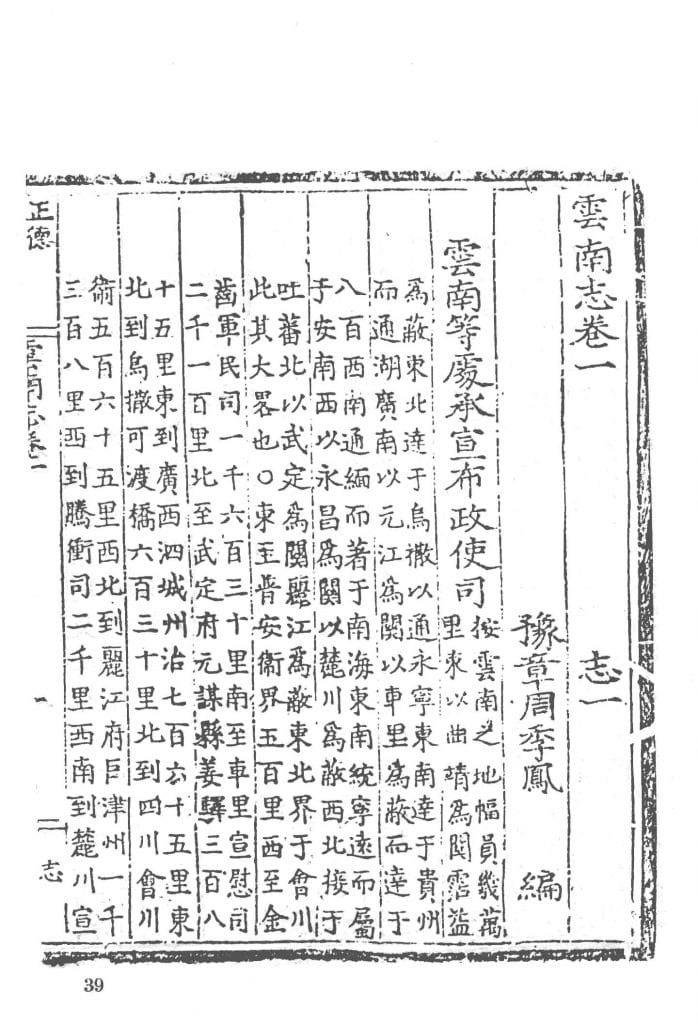 雲南志卷一 志一
豫章周季鳳 編
雲南等處承宣布政使司
按雲南之地幅員幾萬
里東以曲靖爲関霑益
爲蔽東北達于烏撒以通永寧東南達于貴州
而通湖廣南以元江爲関以車里爲蔽而達于
八百西南通緬而著于南海東南統寧遠而屬
于安南西以永昌爲関以麓川爲蔽西北接于
吐蕃北以武定爲関麗江爲蔽東北界于會川
此其大畧也○東至普安衛界五百里西至金
齒軍民司一千六百三十里南至車里宣慰司
二千一百里北至武定府元謀縣姜驛三百八
十五里東到廣西泗城州治七百六十五里東
北到烏撒可渡橋六百三十里北到四川會川
衛五百六十五里西北到麗江府巨津州一千
三百八里西到騰衝司二千里西南到麓川宣
正德 雲南志卷一 一 二志
39